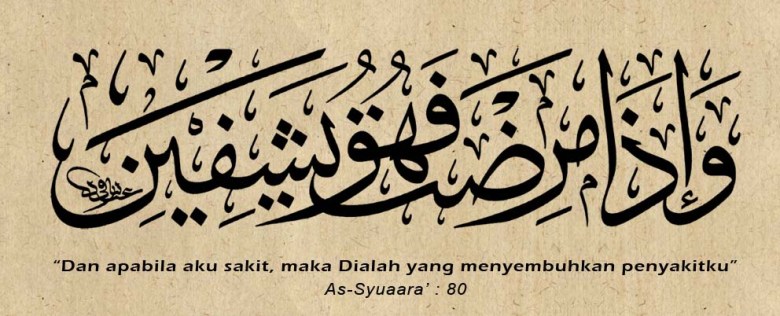 وَإِذَا مَرِضْتُ فَهُوَ يَشْفِينِ
“Dan apabila aku sakit, maka Dialah yang menyembuhkan penyakitku”
As-Syuaara’ : 80